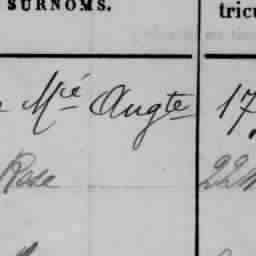 SURNOMS. tricu
Mié Augte 17
Rose 22